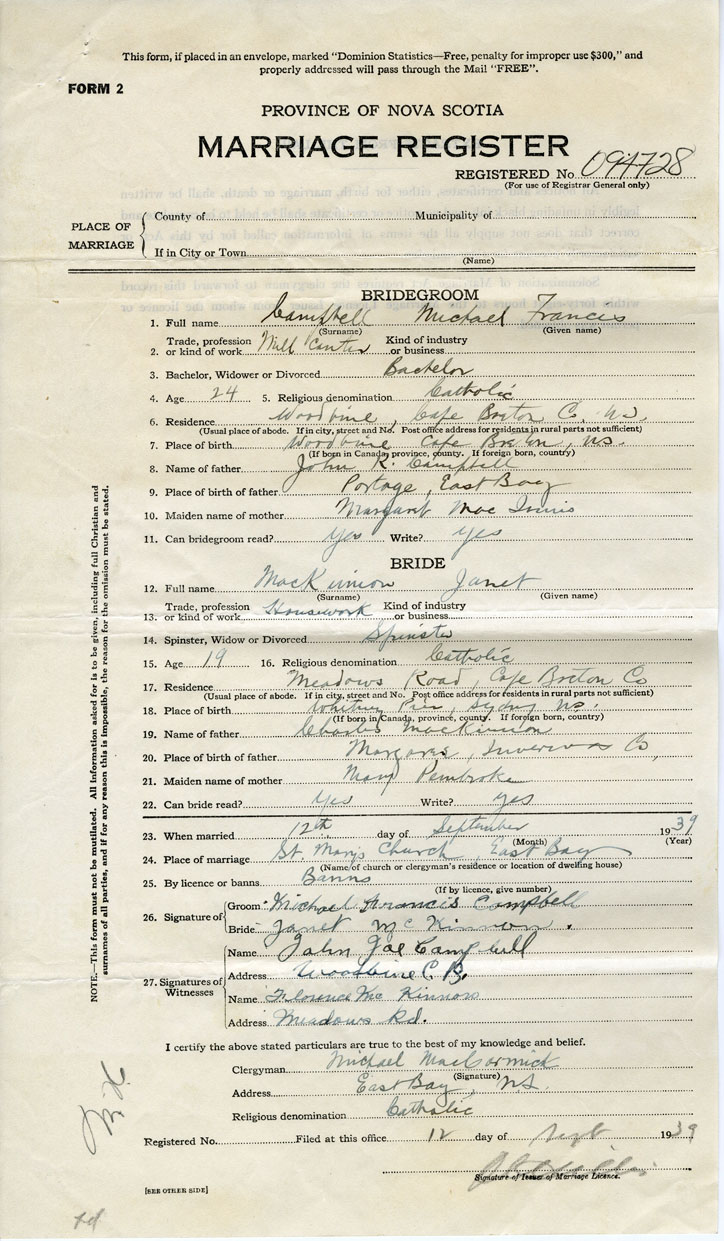 This form, if placed in an envelope, marked "Dominion Statistics—Free, penalty for improper use $300," and
properly addressed will pass through the Mail "FREE".
FORM 2
PROVINCE OF NOVA SCOTIA
MARRIAGE REGISTER
REGISTERED No. 094728
(For use of Registrar General only)
PLACE OF MARRIAGE
County of Municipality of
If in City or Town
(Name)
BRIDEGROOM
1. Full name Campbell Michael Francis
(Surname) (Given name)
2. Trade, profession or kind of work Mill Kind of industry or business
3. Bachelor, Widower or Divorced Bachelor
4. Age 24 5. Religious denomination Catholic
6. Residence Woodbine, Cape Breton Co. N.S.
(Usual place of abode. If in city, street and No. Post office address for residents in rural parts not sufficient)
7. Place of birth Woodbine Cape Breton, N.S.
(If born in Canada, province, county. If foreign born, country)
8. Name of father John R. Campbell
9. Place of birth of father Portage, East Bay
10. Maiden name of mother Margaret Mac Innis
11. Can bridegroom read? Yes Write? Yes
BRIDE
12. Full name MacKinnon Janet
(Surname) (Given name)
13. Trade, profession or kind of work Housework Kind of industry or business
14. Spinster, Widow or Divorced Spinster
15. Age 19 16. Religious denomination Catholic
17. Residence Meadows Road, Cape Breton Co
(Usual place of abode. If in city, street and No. Post office address for residents in rural parts not sufficient)
18. Place of birth Whitney Pier, Sydney N.S.
(If born in Canada, province, county. If foreign born, country)
19. Name of father Charles MacKinnon
20. Place of birth of father Margaree, Inverness Co,
21. Maiden name of mother Mary Pembroke
22. Can bride read? Yes Write? Yes
23. When married 12th day of September 1939
(Month) (Year)
24. Place of marriage St. Mary's Church, East Bay
(Name of church or clergyman's residence or location of dwelling house)
25. By licence or banns Banns
(If by licence, give number)
26. Signature of
Groom Michael Francis Campbell
Bride Janet McKinnon.
27. Signatures of Witnesses
Name John Joe Campbell
Address Woodbine C.B.
Name Florence McKinnon
Address Meadows Rd.
I certify the above stated particulars are true to the best of my knowledge and belief.
Clergyman Michael MacCormick
(Signature)
Address East Bay, N.S.
Religious denomination Catholic
Registered No. Filed at this office 12 day of Sept 1939
Signature of Issuer of Marriage Licence.
[SEE OTHER SIDE]
NOTE.—This form must not be mutilated. All Information asked for is to be given, including full Christian and
surnames of all parties, and if for any reason this is impossible, the reason for the omission must be stated.